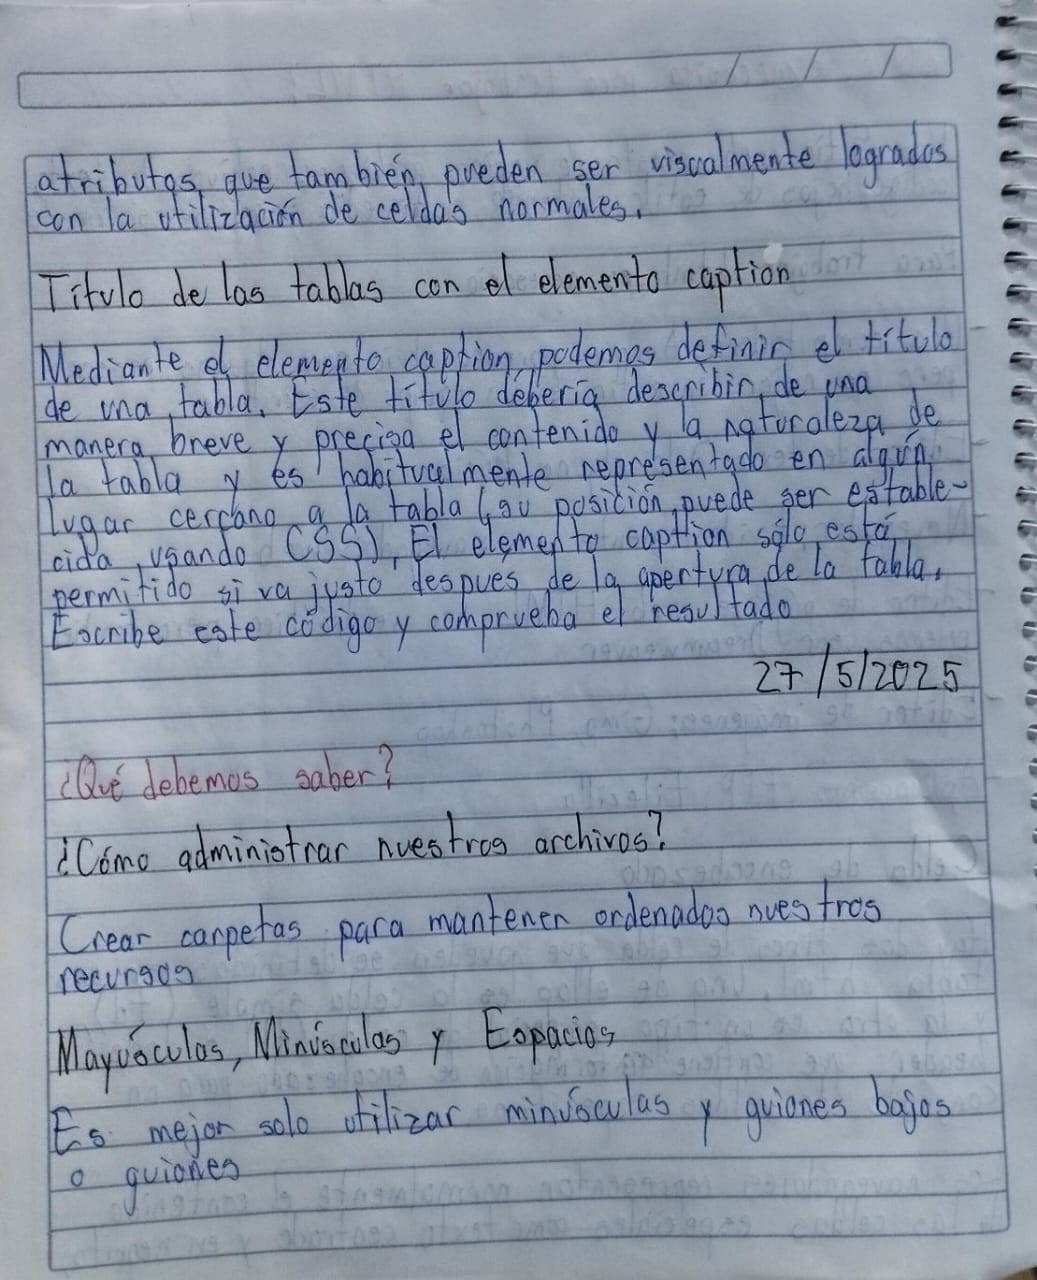 atributos, que también, pueden ser visualmente logrados
con la utilización de celdas normales.
Título de las tablas con el elemento caption
Mediante el elemento caption, podemos definir el título
de una tabla. Este título debería describir, de una
manera breve y precisa el contenido y la naturaleza de
la tabla y es habitualmente representado en algún
lugar cercano a la tabla (su posición puede ser estable-
cida, usando CSS). El elemento caption sólo está
permitido si va justo después de la apertura de la tabla.
Escribe este código y comprueba el resultado
27/5/2025
¿Qué debemos saber?
¿Cómo administrar nuestros archivos?
Crear carpetas para mantener ordenados nuestros
recursos
Mayúsculas, Minúsculas y Espacios
Es mejor solo utilizar minúsculas y guiones bajos
o guiones